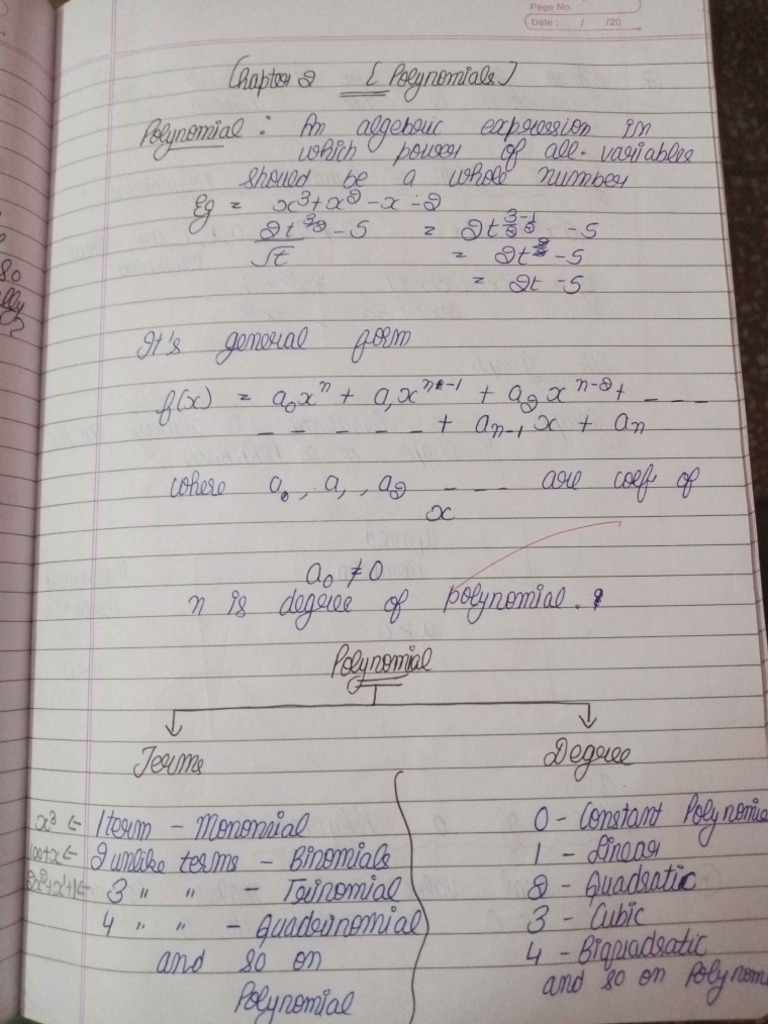 Page No.
Date : / /20
Chapter 2 [Polynomials]
Polynomial : An algebric expression in
which power of all variables
should be a whole number
Eg = x³+x²-x-2
2t^3/2 - 5 = 2t^3/2-1/2 - 5
√t = 2t^2/2 - 5
= 2t - 5
It's general form
f(x) = a₀xⁿ + a₁xⁿ⁻¹ + a₂xⁿ⁻² + - - -
- - - - - - + aₙ₋₁ x + aₙ
where a₀, a₁, a₂ - - - are coeff of
x
a₀ ≠ 0
n is degree of polynomial.
Polynomial
Terms
x³ ← 1 term - Monomial
100+x ← 2 unlike terms - Binomials
3 " " - Trinomial
4 " " - Quadrinomial
and so on
Polynomial
Degree
0 - Constant Polynomia
1 - Linear
2 - Quadratic
3 - Cubic
4 - Biquadratic
and so on Polynom